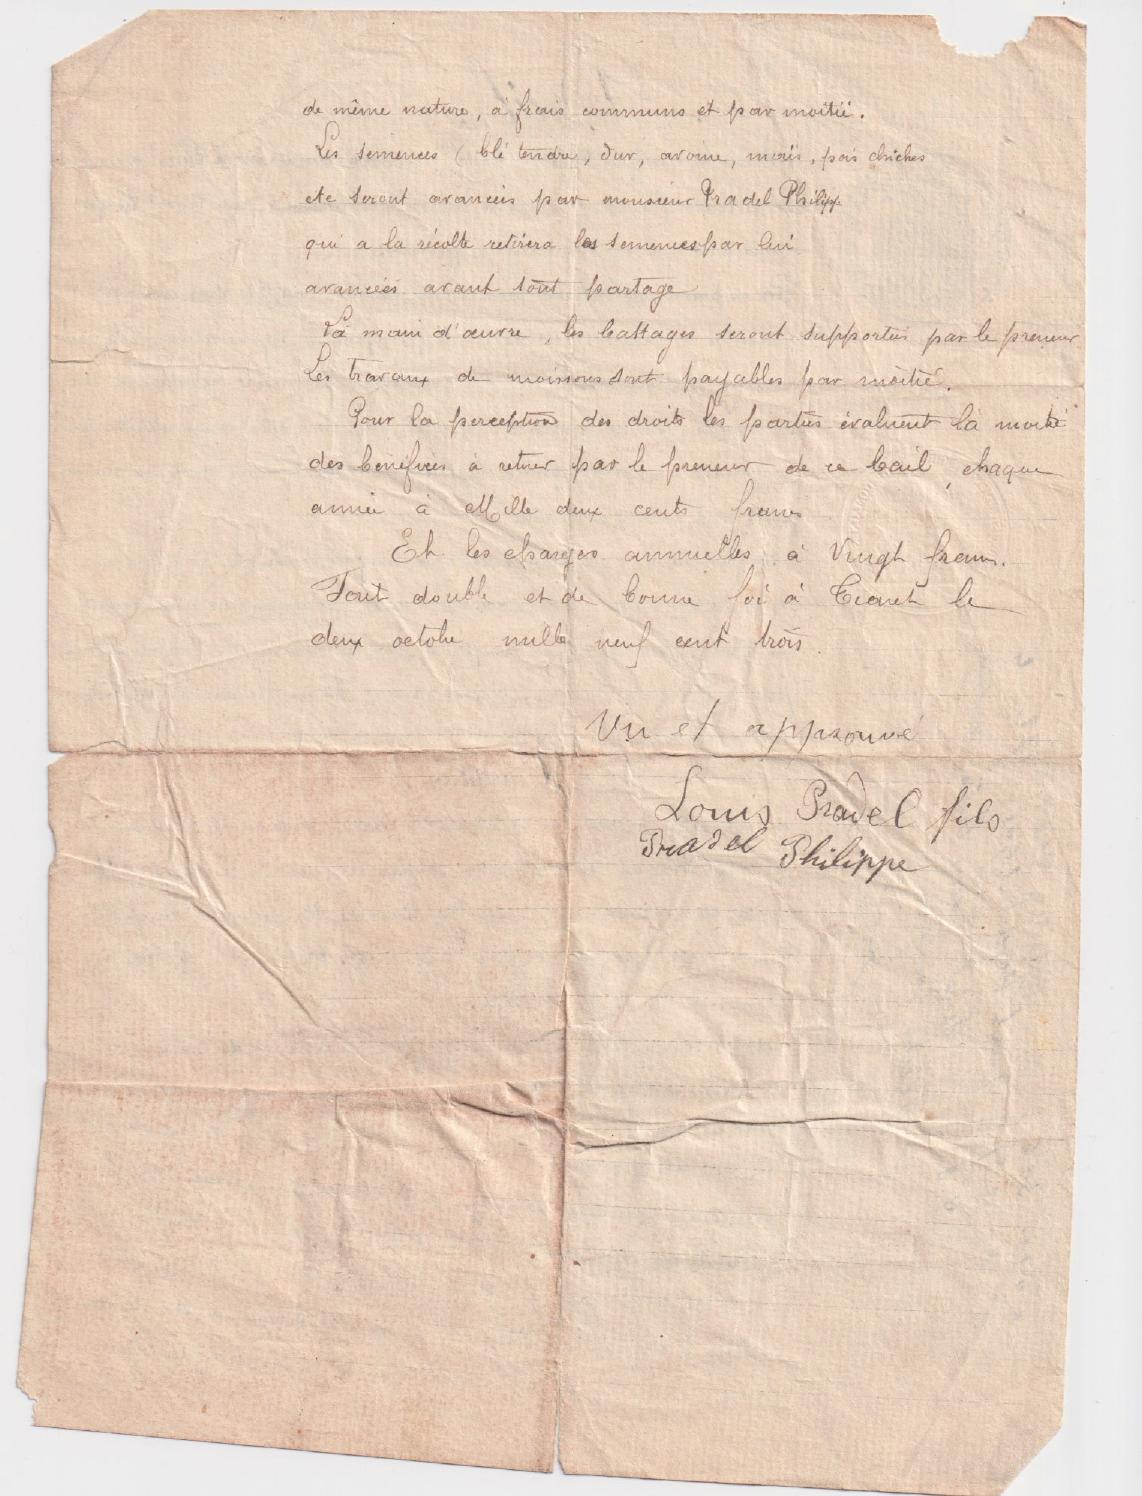 de même nature, à frais communs et par moitié.
Les semences ( blé tendre, dur, avoine, maïs, pois chiches
etc seront avancées par monsieur Pradel Philipp
qui a la récolte retirera les semences par lui
avancées avant tout partage
La main d'œuvre, les battages seront supportés par le preneur
Les travaux de moissons sont payables par moitié.
Pour la perception des droits les parties évaluent la moitié
des bénéfices à retirer par le preneur de ce bail, chaque
année à Mille deux cents francs
Et les charges annuelles à Vingt francs.
Fait double et de bonne foi à Tiaret le
deux octobre mille neuf cent trois.
Vu et approuvé
Louis Pradel fils
Pradel Philippe